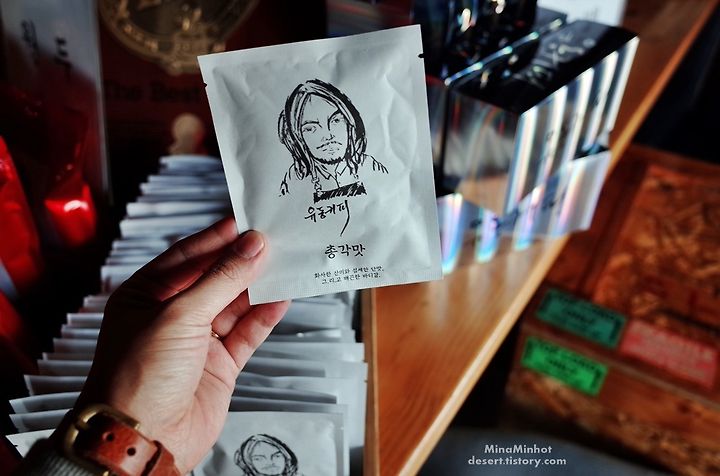 The Best
유동커피
총각맛
화사한 산미와 섬세한 단맛,
그.리.고 매끈한 바디감.
MinaMinhot
desert.tistory.com